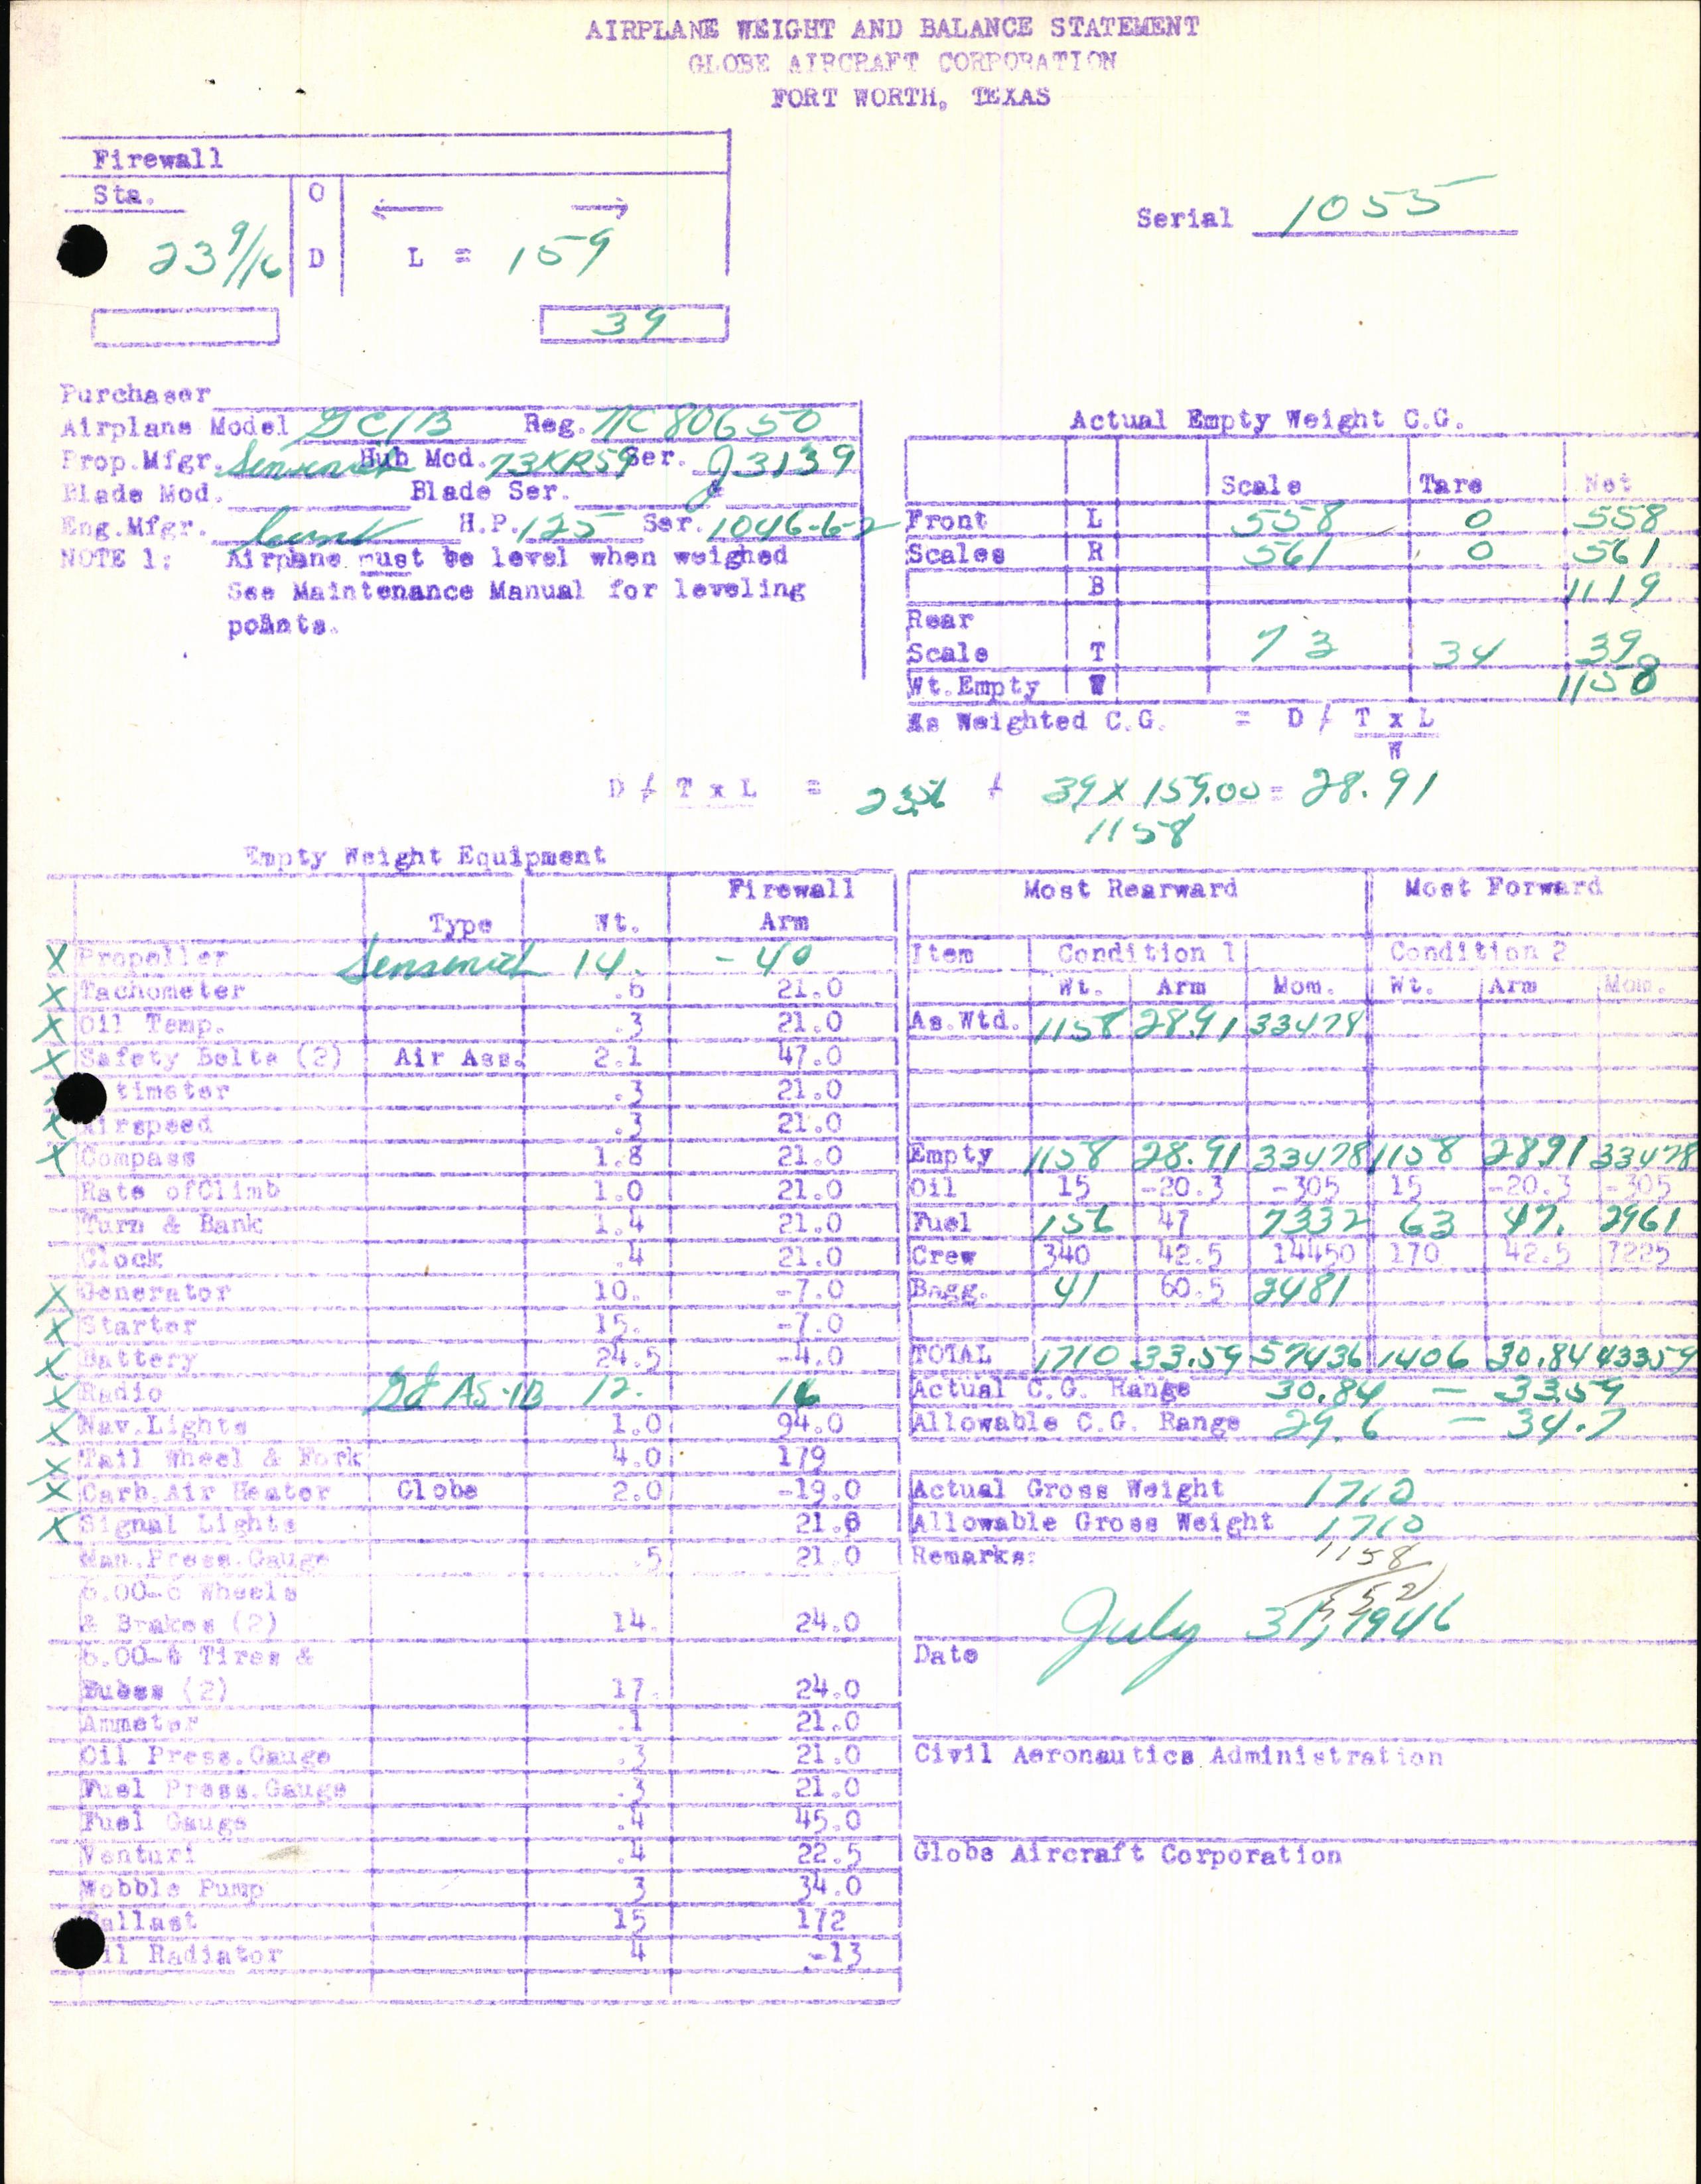 AIRPLANE WEIGHT AND BALANCE STATEMENT
GLOBE AIRCRAFT CORPORATION
FORT WORTH, TEXAS
Firewall
Sta. O
23 9/16 D L = 159
39
Serial 1055
Purchaser
Airplane Model GC1B Reg. NC 80650
Prop.Mfgr. Sensenich Hub Mod. 73KR59 Ser. J3139
Blade Mod. Blade Ser. &
Eng.Mfgr. H.P. 125 Ser. 1046-6-2
NOTE 1: Airplane must be level when weighed
See Maintenance Manual for leveling
points.
Actual Empty Weight C.G.
Scale Tare Net
Front L 558 0 558
Scales R 561 0 561
B 1119
Rear
Scale T 73 34 39
Wt.Empty W 1158
As Weighted C.G. = D / T x L
W
D / T x L = 23.56 / 39 X 159.00 = 28.91
1158
Empty Weight Equipment
Type Wt. Firewall Arm
X Propeller Sensenich 14. -40
X Tachometer .6 21.0
X Oil Temp. .3 21.0
X Safety Belts (2) Air Ass. 2.1 47.0
timeter .3 21.0
X Airspeed .3 21.0
X Compass 1.8 21.0
Rate ofClimb 1.0 21.0
Turn & Bank 1.4 21.0
Clock .4 21.0
X Generator 10. -7.0
X Starter 15. -7.0
X Battery 24.5 -4.0
X Radio GE AS-1B 12. 16
X Nav.Lights 1.0 94.0
X Tail Wheel & Fork 4.0 179
X Carb.Air Heater Globe 2.0 -19.0
X Signal Lights 21.6
Man.Press.Gauge .5 21.0
6.00-6 Wheels
& Brakes (2) 14. 24.0
6.00-6 Tires &
Tubes (2) 17. 24.0
Ammeter .1 21.0
Oil Press.Gauge .3 21.0
Fuel Press.Gauge .3 21.0
Fuel Gauge .4 45.0
Venturi .4 22.5
Wobble Pump 3 34.0
Ballast 15 172
il Radiator 4 -13
Most Rearward Most Forward
Item Condition 1 Condition 2
Wt. Arm Mom. Wt. Arm Mom.
As.Wtd. 1158 28.91 33478
Empty 1158 28.91 33478 1158 28.91 33478
Oil 15 -20.3 -305 15 -20.3 -305
Fuel 156 47 7332 63 47. 2961
Crew 340 42.5 14450 170 42.5 7225
Bagg. 41 60.5 2481
TOTAL 1710 33.59 57436 1406 30.84 43359
Actual C.G. Range 30.84 — 33.59
Allowable C.G. Range 29.6 — 34.7
Actual Gross Weight 1710
Allowable Gross Weight 1710
Remarks: 1158
552
July 31, 1946
Date
Civil Aeronautics Administration
Globe Aircraft Corporation